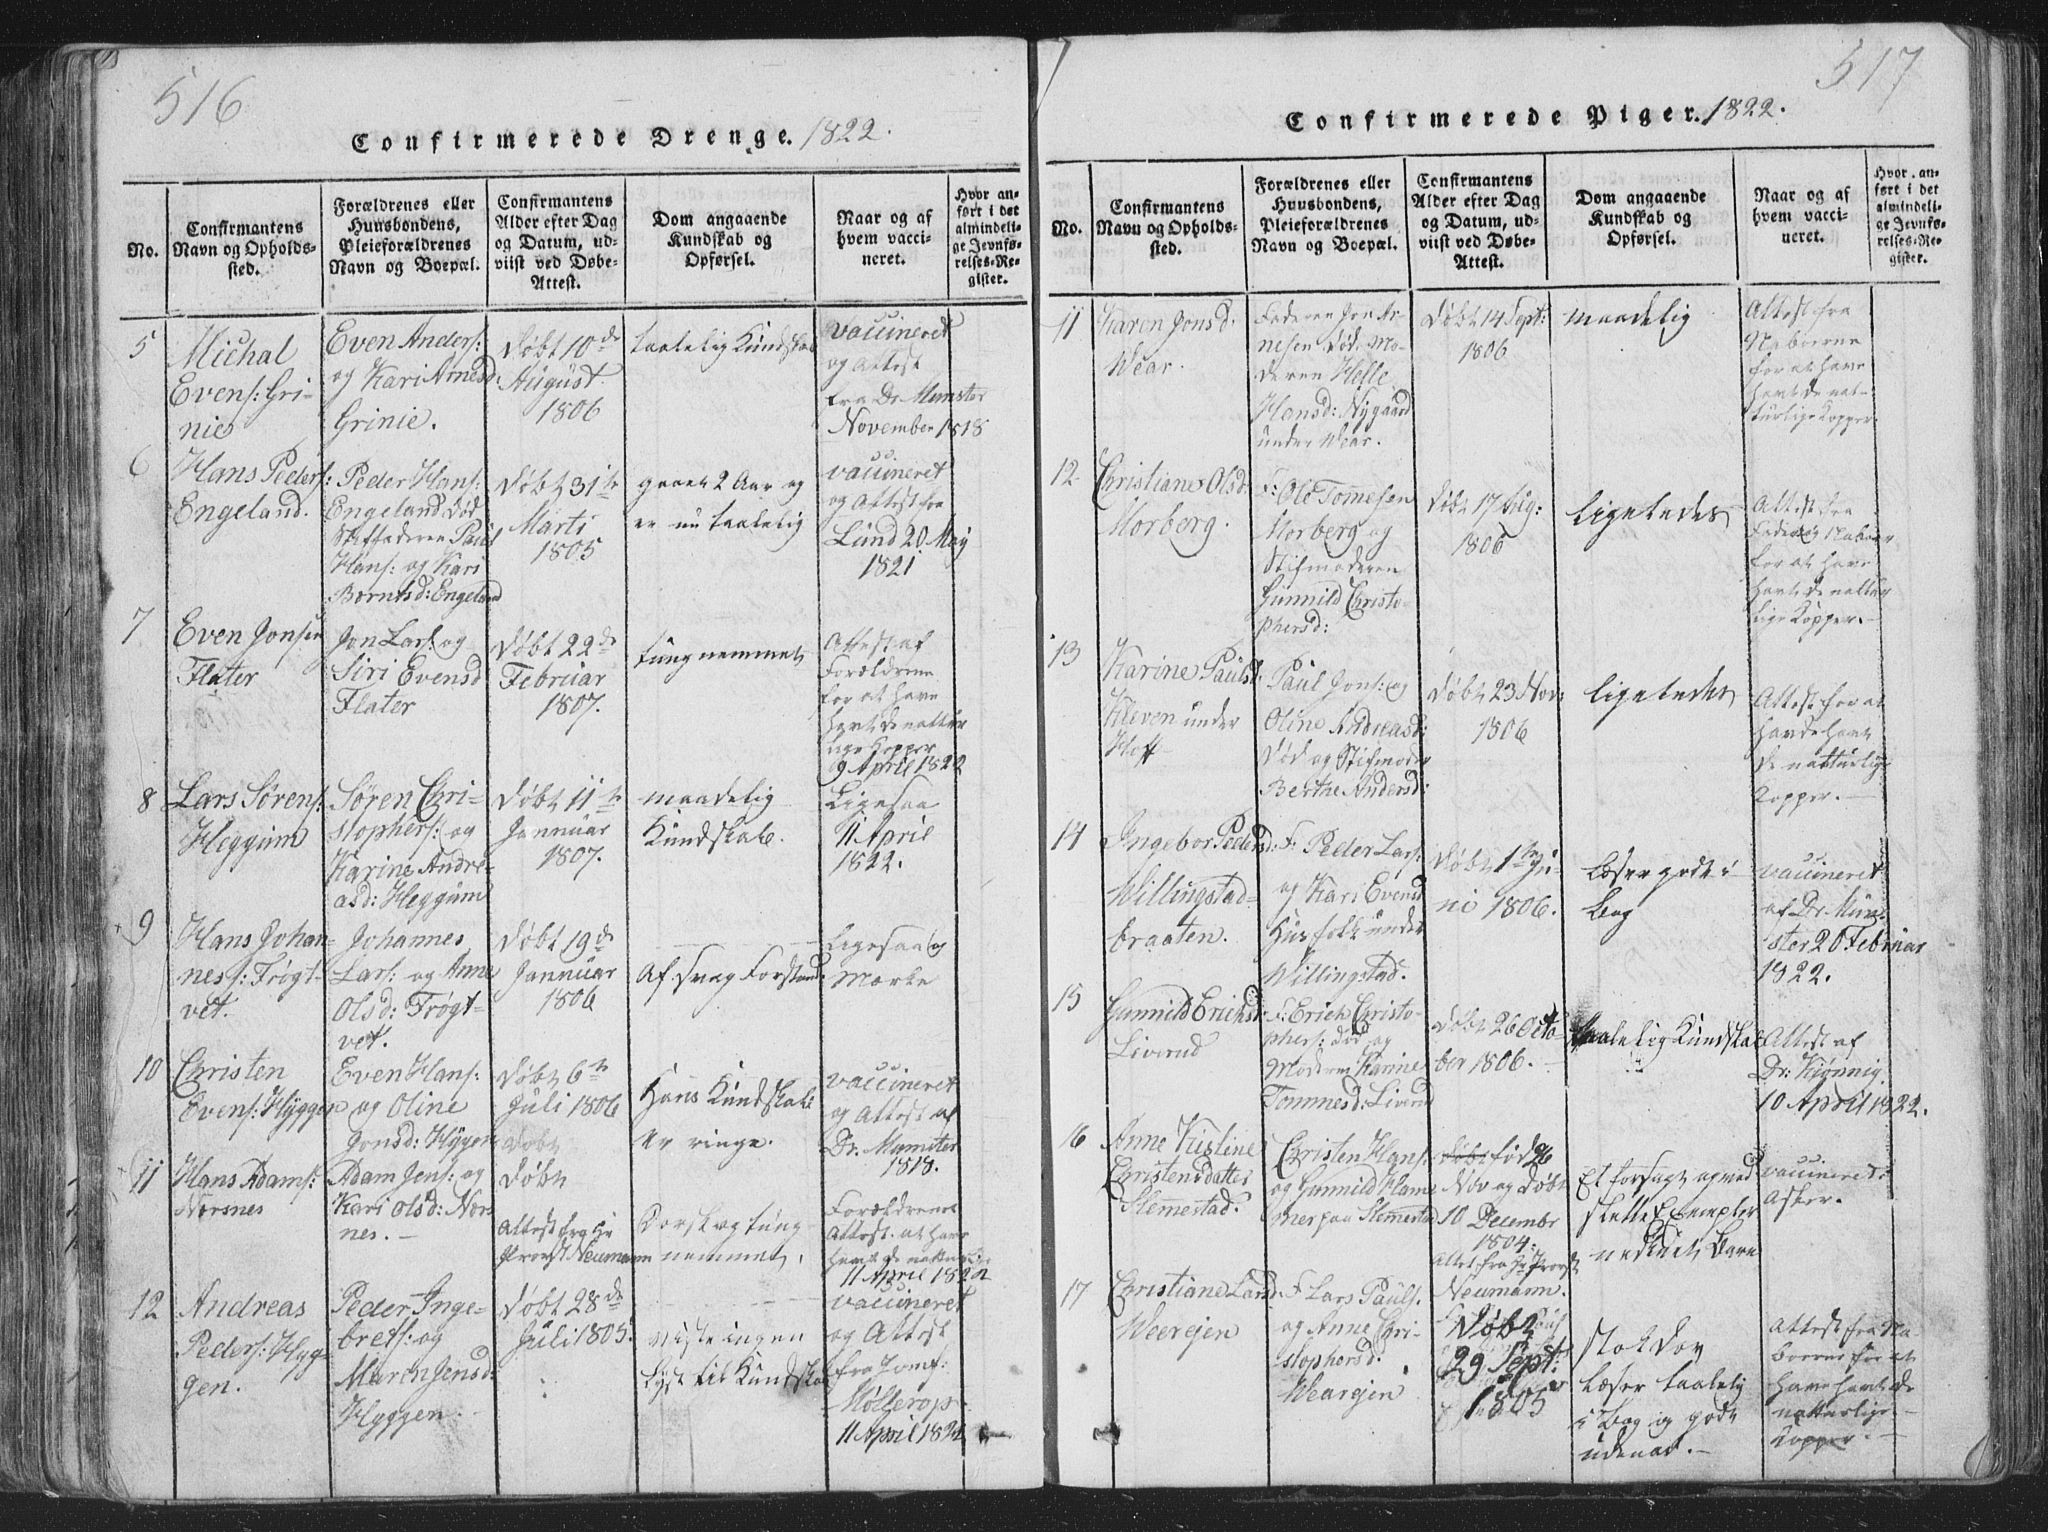 516
Confirmerede Drenge. 1822.
No.
Confirmantens
Navn og Opholds-
sted.
Forældrenes eller
Huusbondens,
Pleieforældrenes
Navn og Boepæl.
Confirmantens
Alder efter Dag
og Datum, ud-
viist ved Døbe-
Attest.
Dom angaaende
Kundskab og
Opførsel.
Naar og af
hvem vacci-
neret.
Hvor an-
ført i det
almindeli-
ge Jevnfø-
relses-Re-
gister.
5
Michal
Evens: Gri-
nie
Even Anders:
og Kari Arnesd:
Grinie.
Døbt 10de
August
1806
taalelig Kundskab
vaccineret
og Attest
fra Dr Munster
November 1818
6
Hans Peders:
Engeland.
Peder Hans:
Engeland død
Stiffaderen Paul
Hans: og Kari
Berntsd: Engeland
Døbt 31te
Marti
1805
gaaet 2 Aar og
er nu taalelig
vaccineret
og Attest fra
Lund 20 May
1821
7
Even Jonsen
Flater
Jon Lars: og
Siri Evensd
Flater
Døbt 22de
Februar
1807.
tungnemmet
Attest af
Forældrene
for at have
havt de nattur
lige Kopper
9 April 1822
8
Lars Sørens:
Heggum
Søren Chri-
stophers: og
Karine Andre-
asd: Heggum
Døbt 11te
Januar
1807.
maadelig
Kundskab.
Ligesaa
11 April
1822.
9
Hans Johan-
nes: Trøgt-
vet.
Johannes
Lars: og Anne
Olsd: Trøgt-
vet.
Døbt 19de
Januar
1806
Af svag Forstand
Ligesaa og
Mærke
10
Christen
Evens: Hyggen
Even Hans:
og Oline
Jonsd: Hygen
Døbt 6te
Juli 1806
Døbt
Hans Kundskab
er ringe.
vaccineret
og Attest af
Dr. Munster
1818.
11
Hans Adams:
Nersnes
Adam Jens: og
Kari Olsd: Ners
nes.
Døbt
Attest fra Hr
Provst Neumann
Dorsk og tung
nemmet.
Forældrenes
Attest at have
havt de naturlige
11 April 1822
12
Andreas
Peders: Hyg-
gen.
Peder Inge-
brets: og
Maren Jensd:
Hyggen
Døbt 28de
Juli 1805.
viste ingen
Lyst til Kundskab
vaccineret
og Attest
fra Jomf:
Møllerop
11 April 1822
517
Confirmerede Piger. 1822.
No.
Confirmantens
Navn og Opholds-
sted.
Forældrenes eller
Huusbondens,
Pleieforældrenes
Navn og Boepæl.
Confirmantens
Alder efter Dag
og Datum, ud-
viist ved Døbe-
Attest.
Dom angaaende
Kundskab og
Opførsel.
Naar og af
hvem vacci-
neret.
Hvor an-
ført i det
almindeli-
ge Jevnfø-
relses-Re-
gister.
11
Karen Jonsd.
Wear.
Faderen Jon Ar-
nesen død. Mo-
deren Helle
Hansd: Nygaard
under Wear.
Døbt 14 Sept:
1806
maadelig
Attest fra
Naboerne
for at have
havt de nat-
turlige Kopper.
12
Christiane Olsd:
Morberg.
F: Ole Tomesen
Morberg og
Stifmoderen
Gunnild Christo-
phersd:
Døbt 17 Aug:
1806
Ligeledes
Attest fra
Fader og Naboer
for at have
havt de nattur
lige Kopper.-
13
Karine Paulsd:
Kleven under
Hoff
Paul Jons: og
Oline Andreasd:
død og Stifmoder
Berthe Andersd:
Døbt 23 Nov:
1806
ligeledes
Attest for at
havde havt
de natturlige
Kopper.-
14
Ingebor Pedersd:
Willingstad-
braaten.
F: Peder Lars:
og Kari Evensd
Husfolk under
Willingstad.
Døbt 1te Ju-
ni 1806.
Læser gode i
Bog
vaccineret
af Dr. Mün-
ster 20 Februar
1822.
15
Gunnild Erichsd:
Liverud
F: Erich Christo-
phers: død og
Moderen Karine
Tommesd: Liverud
Døbt 26 Octo-
ber 1806.
taalelig Kundskab
Attest af
Dr: Kiønnig
10 April 1822.
16
Anne Kistine
Christensdatter
Slemestad.
Christen Hans:
og Gunnild Hame
mer paa Slemestad
født 26
Nov og døbt
10 December
1804:
Attest fra Hr Provst
Neumann.
Et forsagt og med
slette Exempler
Barn
vaccineret:
Asker.
17
Christiane Larsd:
Weerejen
F Lars Pauls.
og Anne Chri-
stophersd.
Wearejen
Døbt
29 Sept:
1805
Læser taalelig
i Bog og gode
udenad.-
Attest fra Na-
boerne for at
have havt de
natturlige
Kopper.-